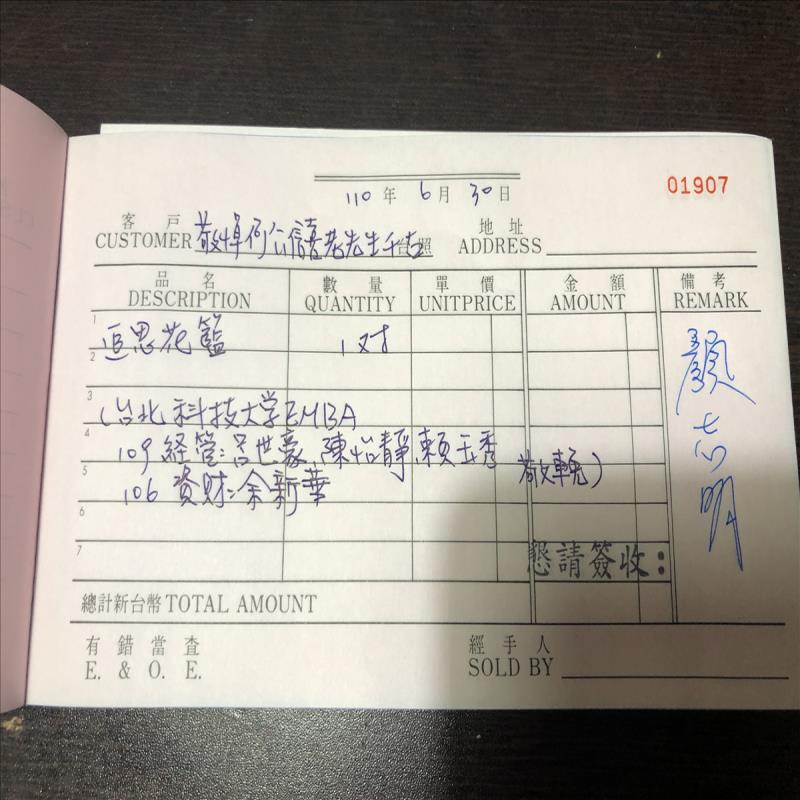 01907
110 年 6 月 30 日
客戶 敬悼何公信憙老先生千古 台照 地址
CUSTOMER ADDRESS
品名 數量 單價 金額 備考
DESCRIPTION QUANTITY UNITPRICE AMOUNT REMARK
1 追思花籃 1对
2
3 (台北科技大学EMBA
4 109 経管:呂世豪、陳怡靜、賴玉秀
5 106 資財:余新華 敬輓)
6
7
懇請簽收:
顏志明
總計新台幣 TOTAL AMOUNT
有錯當查 經手人
E. & O. E. SOLD BY